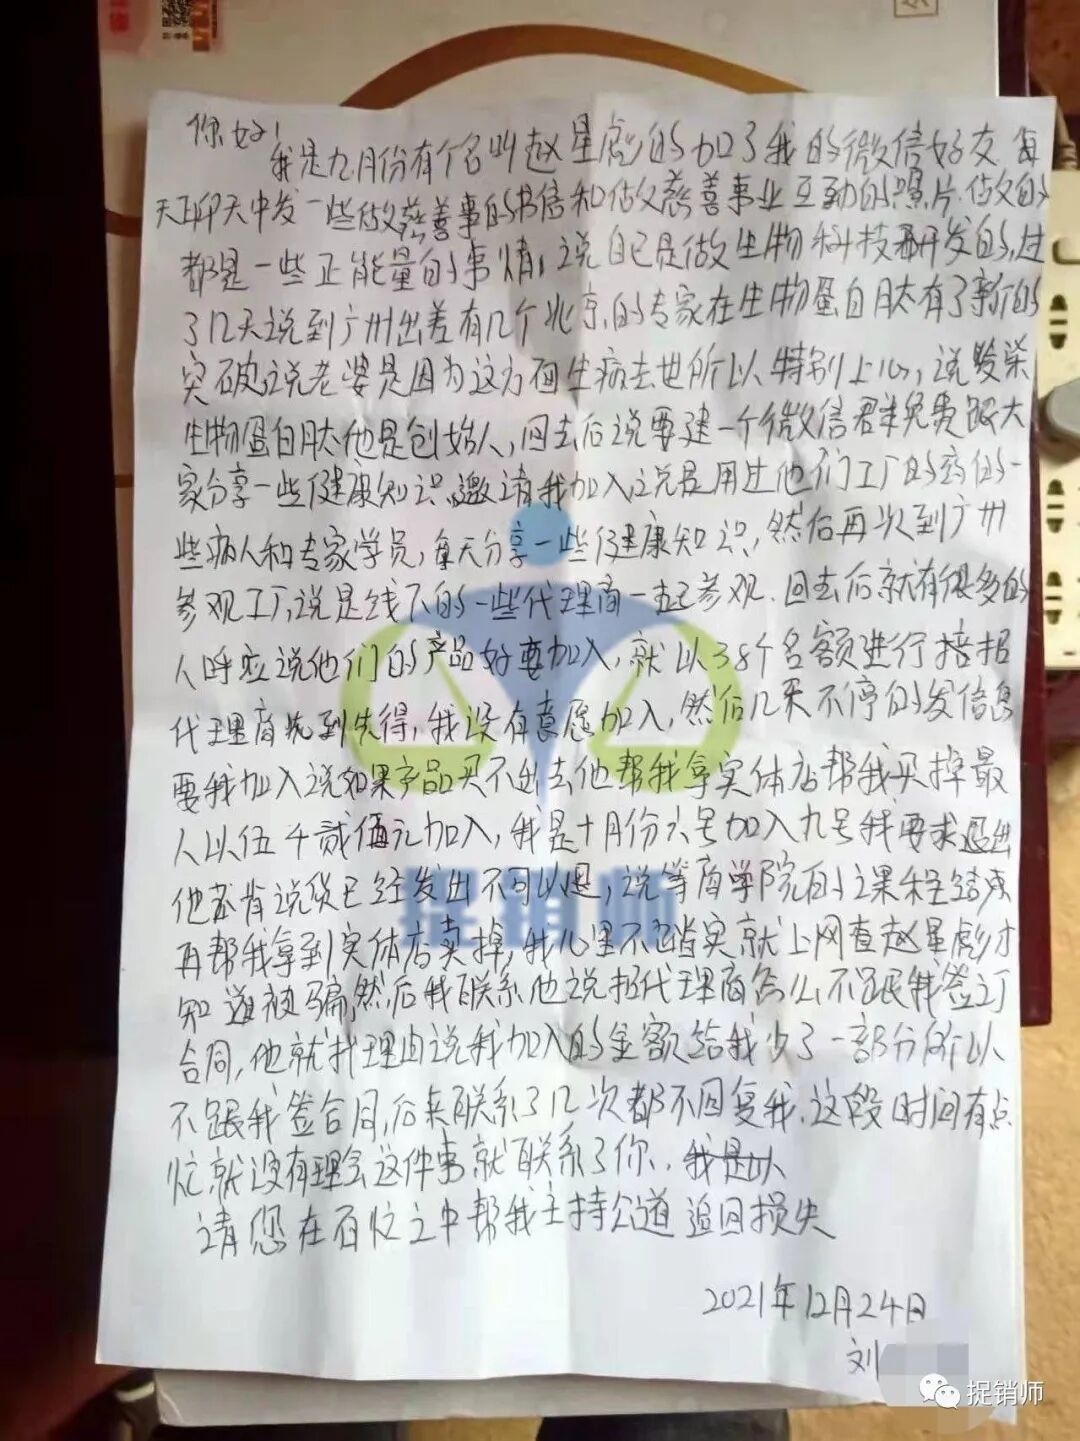 你好!
我是九月份有个名叫赵星彪的加了我的微信好友每
天聊天中发一些做慈善事的书信和做慈善事业互动的照片.做的
都是一些正能量的事情,说自已是做生物科技研开发的,过
了几天说到广州出差有几个北京的专家在生物蛋白肽有了新的
突破,说老婆是因为这方面生病去世所以特别上心,说
生物蛋白肽他是创始人,回去后说要建一个微信群免费跟大
家分享一些健康知识.邀请我加入,说是用过他们工厂的药的一
些病人和专家学员,每天分享一些健康知识,然后再次到广州
参观工厂,说是线下的一些代理商一起参观.回去后就有很多的
人呼应说他们的产品好要加入,就以38个名额进行
代理商先到先得,我没有意愿加入,然后几天不停的发信息
要我加入说如果产品买不出去他帮我拿实体店帮我买掉最
人以伍千贰佰元加入,我是十月份六号加入九号我要求退出
他不肯说货已经发出不可以退,说等商学院的课程结束
再帮我拿到实体店卖掉,我心里不踏实就上网查赵星彪才
知道被骗,然后我联系他说招代理商怎么不跟我签订
合同,他就找理由说我加入的金额给我少了一部分所以
不跟我签合同,后来联系了几次都不回复我.这段时间有点
忙就没有理会这件事就联系了你.我是以
请您在百忙之中帮我主持公道追回损失
2021年12月24日
刘
捉销师
捉销师